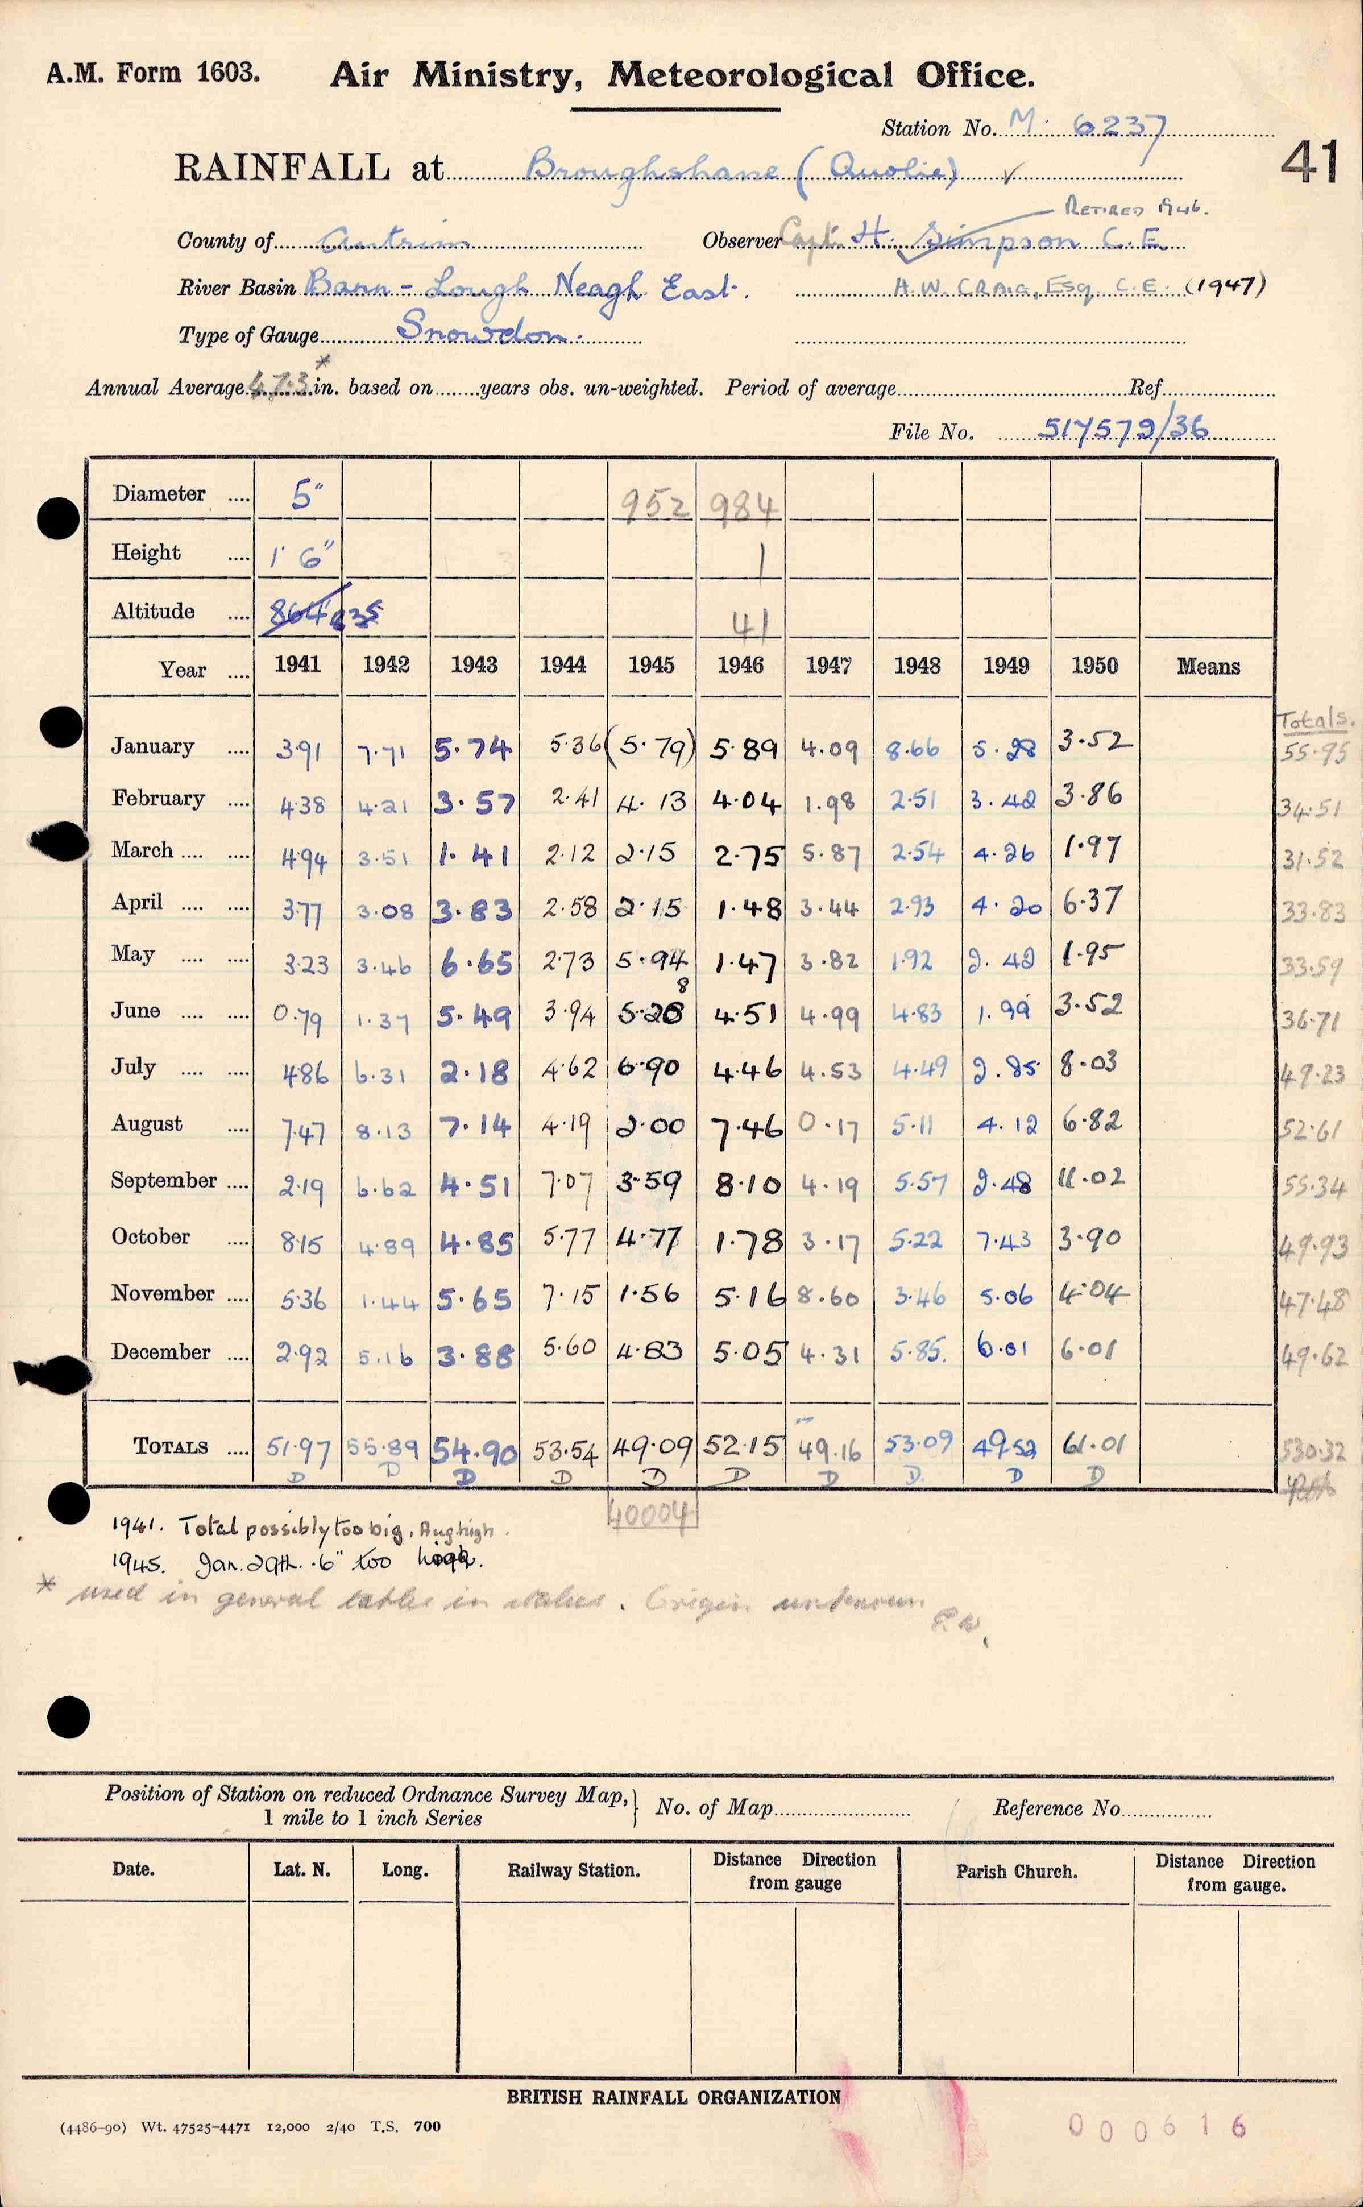 A.M. Form 1603. Air Ministry, Meteorological Office.
Station No. M. 6237
41
RAINFALL at Broughshane (Quolie) ✓
RETIRED 1946.
County of Antrim Observer Capt. H. Simpson C.E.
River Basin Bann - Lough Neagh East. H.W. CRAIG, Esq. C.E. (1947)
Type of Gauge Snowdon.
Annual Average 47.3* in. based on years obs. un-weighted. Period of average Ref.
File No. 517579/36
Diameter 5" 952 984
Height 1' 6" 1
Altitude 864 835 41
Year 1941 1942 1943 1944 1945 1946 1947 1948 1949 1950 Means
Totals.
January 3.91 7.71 5.74 5.36 (5.79) 5.89 4.09 8.66 5.28 3.52 55.95
February 4.38 4.21 3.57 2.41 4.13 4.04 1.98 2.51 3.42 3.86 34.51
March 4.94 3.51 1.41 2.12 2.15 2.75 5.87 2.54 4.26 1.97 31.52
April 3.77 3.08 3.83 2.58 2.15 1.48 3.44 2.93 4.20 6.37 33.83
May 3.23 3.46 6.65 2.73 5.94 1.47 3.82 1.92 2.42 1.95 33.59
June 0.79 1.37 5.49 3.94 5.28 4.51 4.99 4.83 1.99 3.52 36.71
July 4.86 6.31 2.18 4.62 6.90 4.46 4.53 4.49 2.85 8.03 49.23
August 7.47 8.13 7.14 4.19 2.00 7.46 0.17 5.11 4.12 6.82 52.61
September 2.19 6.62 4.51 7.07 3.59 8.10 4.19 5.57 2.48 11.02 55.34
October 8.15 4.89 4.85 5.77 4.77 1.78 3.17 5.22 7.43 3.90 49.93
November 5.36 1.44 5.65 7.15 1.56 5.16 8.60 3.46 5.06 4.04 47.48
December 2.92 5.16 3.88 5.60 4.83 5.05 4.31 5.85. 6.01 6.01 49.62
TOTALS 51.97 55.89 54.90 53.54 49.09 52.15 49.16 53.09 49.52 61.01 530.32
D D D D D D D D D D
40004
1941. Total possibly too big. Aug high.
1945. Jan. 29th. .6" too high.
* used in general tables in . Origin unknown
P.W.
Position of Station on reduced Ordnance Survey Map, 1 mile to 1 inch Series No. of Map Reference No.
Date. Lat. N. Long. Railway Station. Distance Direction from gauge Parish Church. Distance Direction from gauge.
BRITISH RAINFALL ORGANIZATION
(4486-90) Wt. 47525-4471 12,000 2/40 T.S. 700
000616